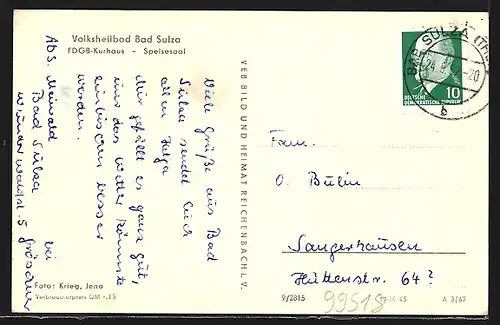 Volksheilbad Bad Sulza
FDGB-Kurhaus - Speisesaal
Viele Grüße aus Bad
Sulza sendet Euch
allen Helga
Mir gefällt es ganz gut,
nur das Wetter könnte
ein bisschen besser
werden.
Abs. Meiwald bei
Bad Sulza
Wunderwaldstr. 5
Foto: Krieg, Jena
Verbraucherpreis DM -,15
VEB BILD UND HEIMAT REICHENBACH i. V.
BAD SULZA
24
20
b
10
DEUTSCHE
DEMOKRATISCHE REPUBLIK
Fam.
O. Bulin
Sangerhausen
Hüttenstr. 64?
9/2815
99518
A 3/62